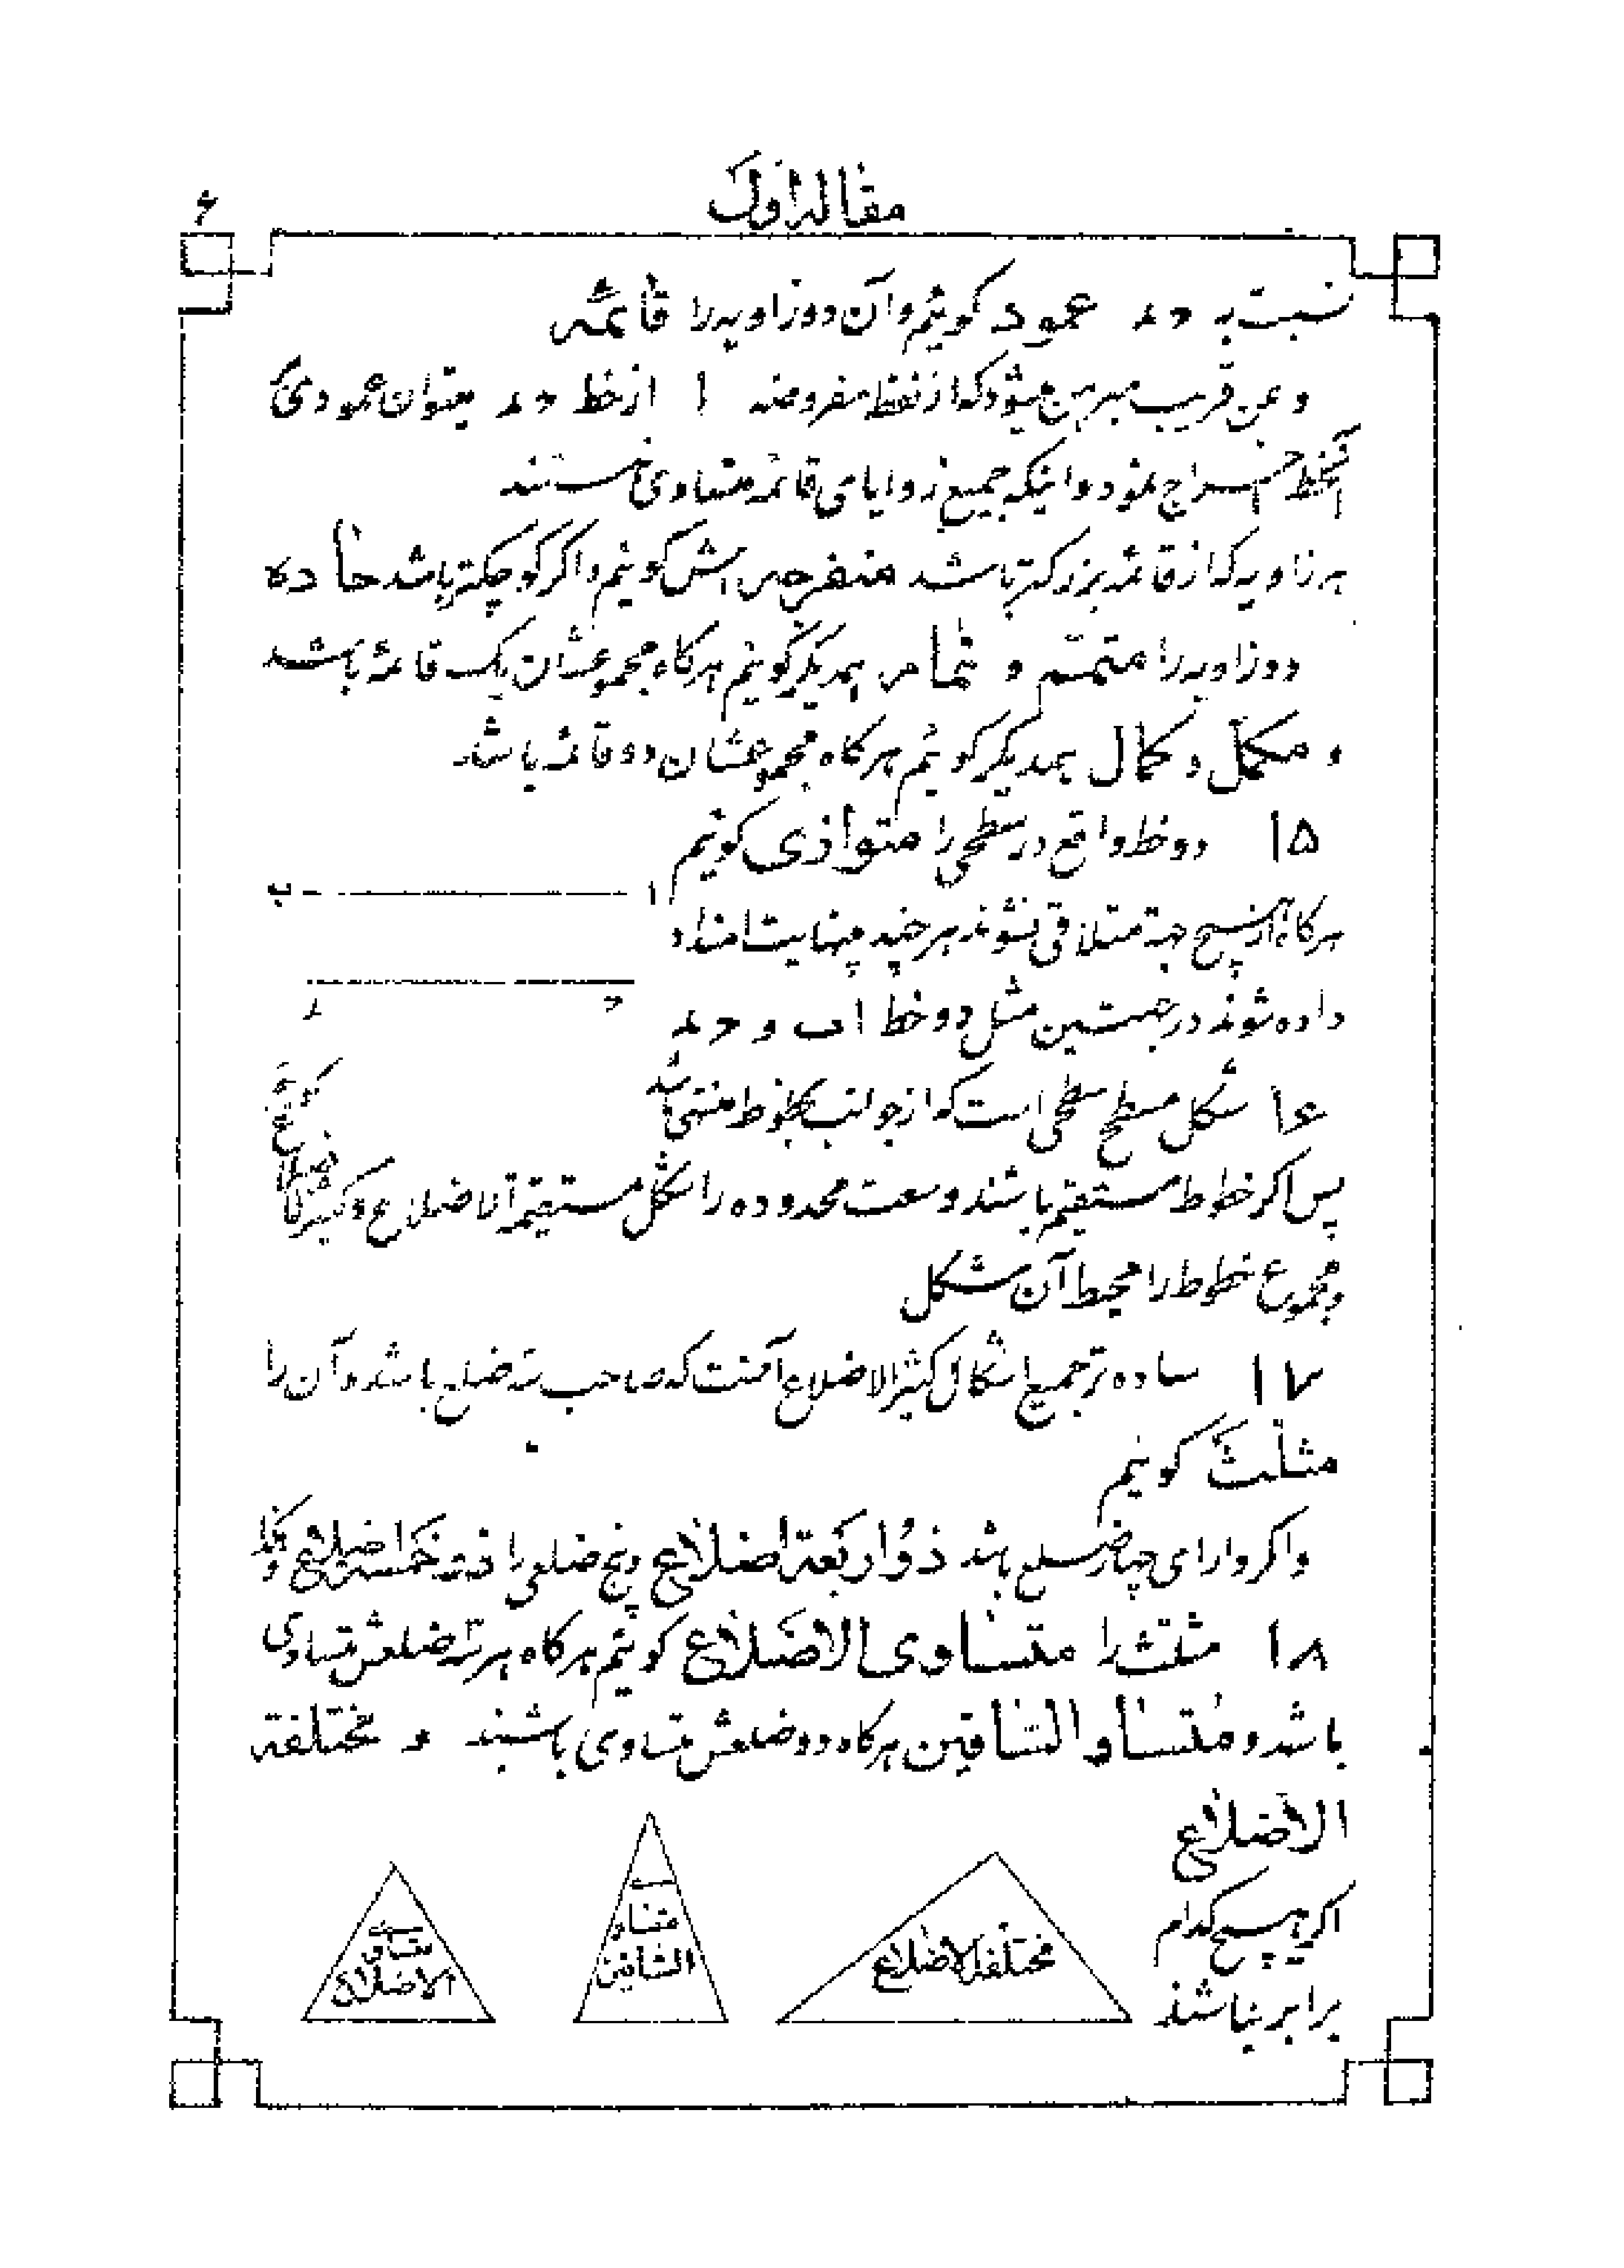 مقاله اول
۶
نسبت به حد عمود کوئیم و آن دو زاویه را قائمه
و عن قریب مبرهن میشود که از نقطه مفروضه ا از خط حد میتوان عمودی بر
آنخط اخراج نمود و اینکه جمیع زوایای قائمه متساوی هستند
هر زاویه که از قائمه بزرکتر باشد منفرجه اش کوئیم و اکر کوچکتر باشد حاده
دو زاویه را متمّم و تمام همدیکر کوئیم هرکاه مجموعشان یک قائمه باشد
و مکمّل و کمال همدیکر کوئیم هرکاه مجموعشان دو قائمه باشد
۱۵ دو خط واقع در سطحی را متوازی کوئیم
ا ب
هرکاه از هیچ جهة متلاقی نشوند هر چند بینهایت امتداد
ح د
داده شوند در جهتین مثل دو خط اب و حد
۱۶ شکل مسطح سطحی است که از جوانب بخطوط منتهی باشد
پس اکر خطوط مستقیم باشند وسعت محدوده را شکل مستقیم الاضلاع و کثیر الاضلاع کوئیم
و مجموع خطوط را محیط آن شکل
۱۷ ساده تر جمیع اشکال کثیر الاضلاع آنست که صاحب سه ضلع باشد و آن را
مثلّث کوئیم
و اکر دارای چهار ضلع باشد ذو اربعة اضلاع و پنج ضلعی را ذو خمسة اضلاع و هکذا
۱۸ مثلّث را متساوی الاضلاع کوئیم هرکاه هر سه ضلعش متساوی
باشد و متساو السّاقین هرکاه دو ضلعش متساوی باشند و مختلفة
الاضلاع
اکر هیچ کدام
برابر نباشند
مختلفة الاضلاع
متساو
السّاقین
متساوی
الاضلاع